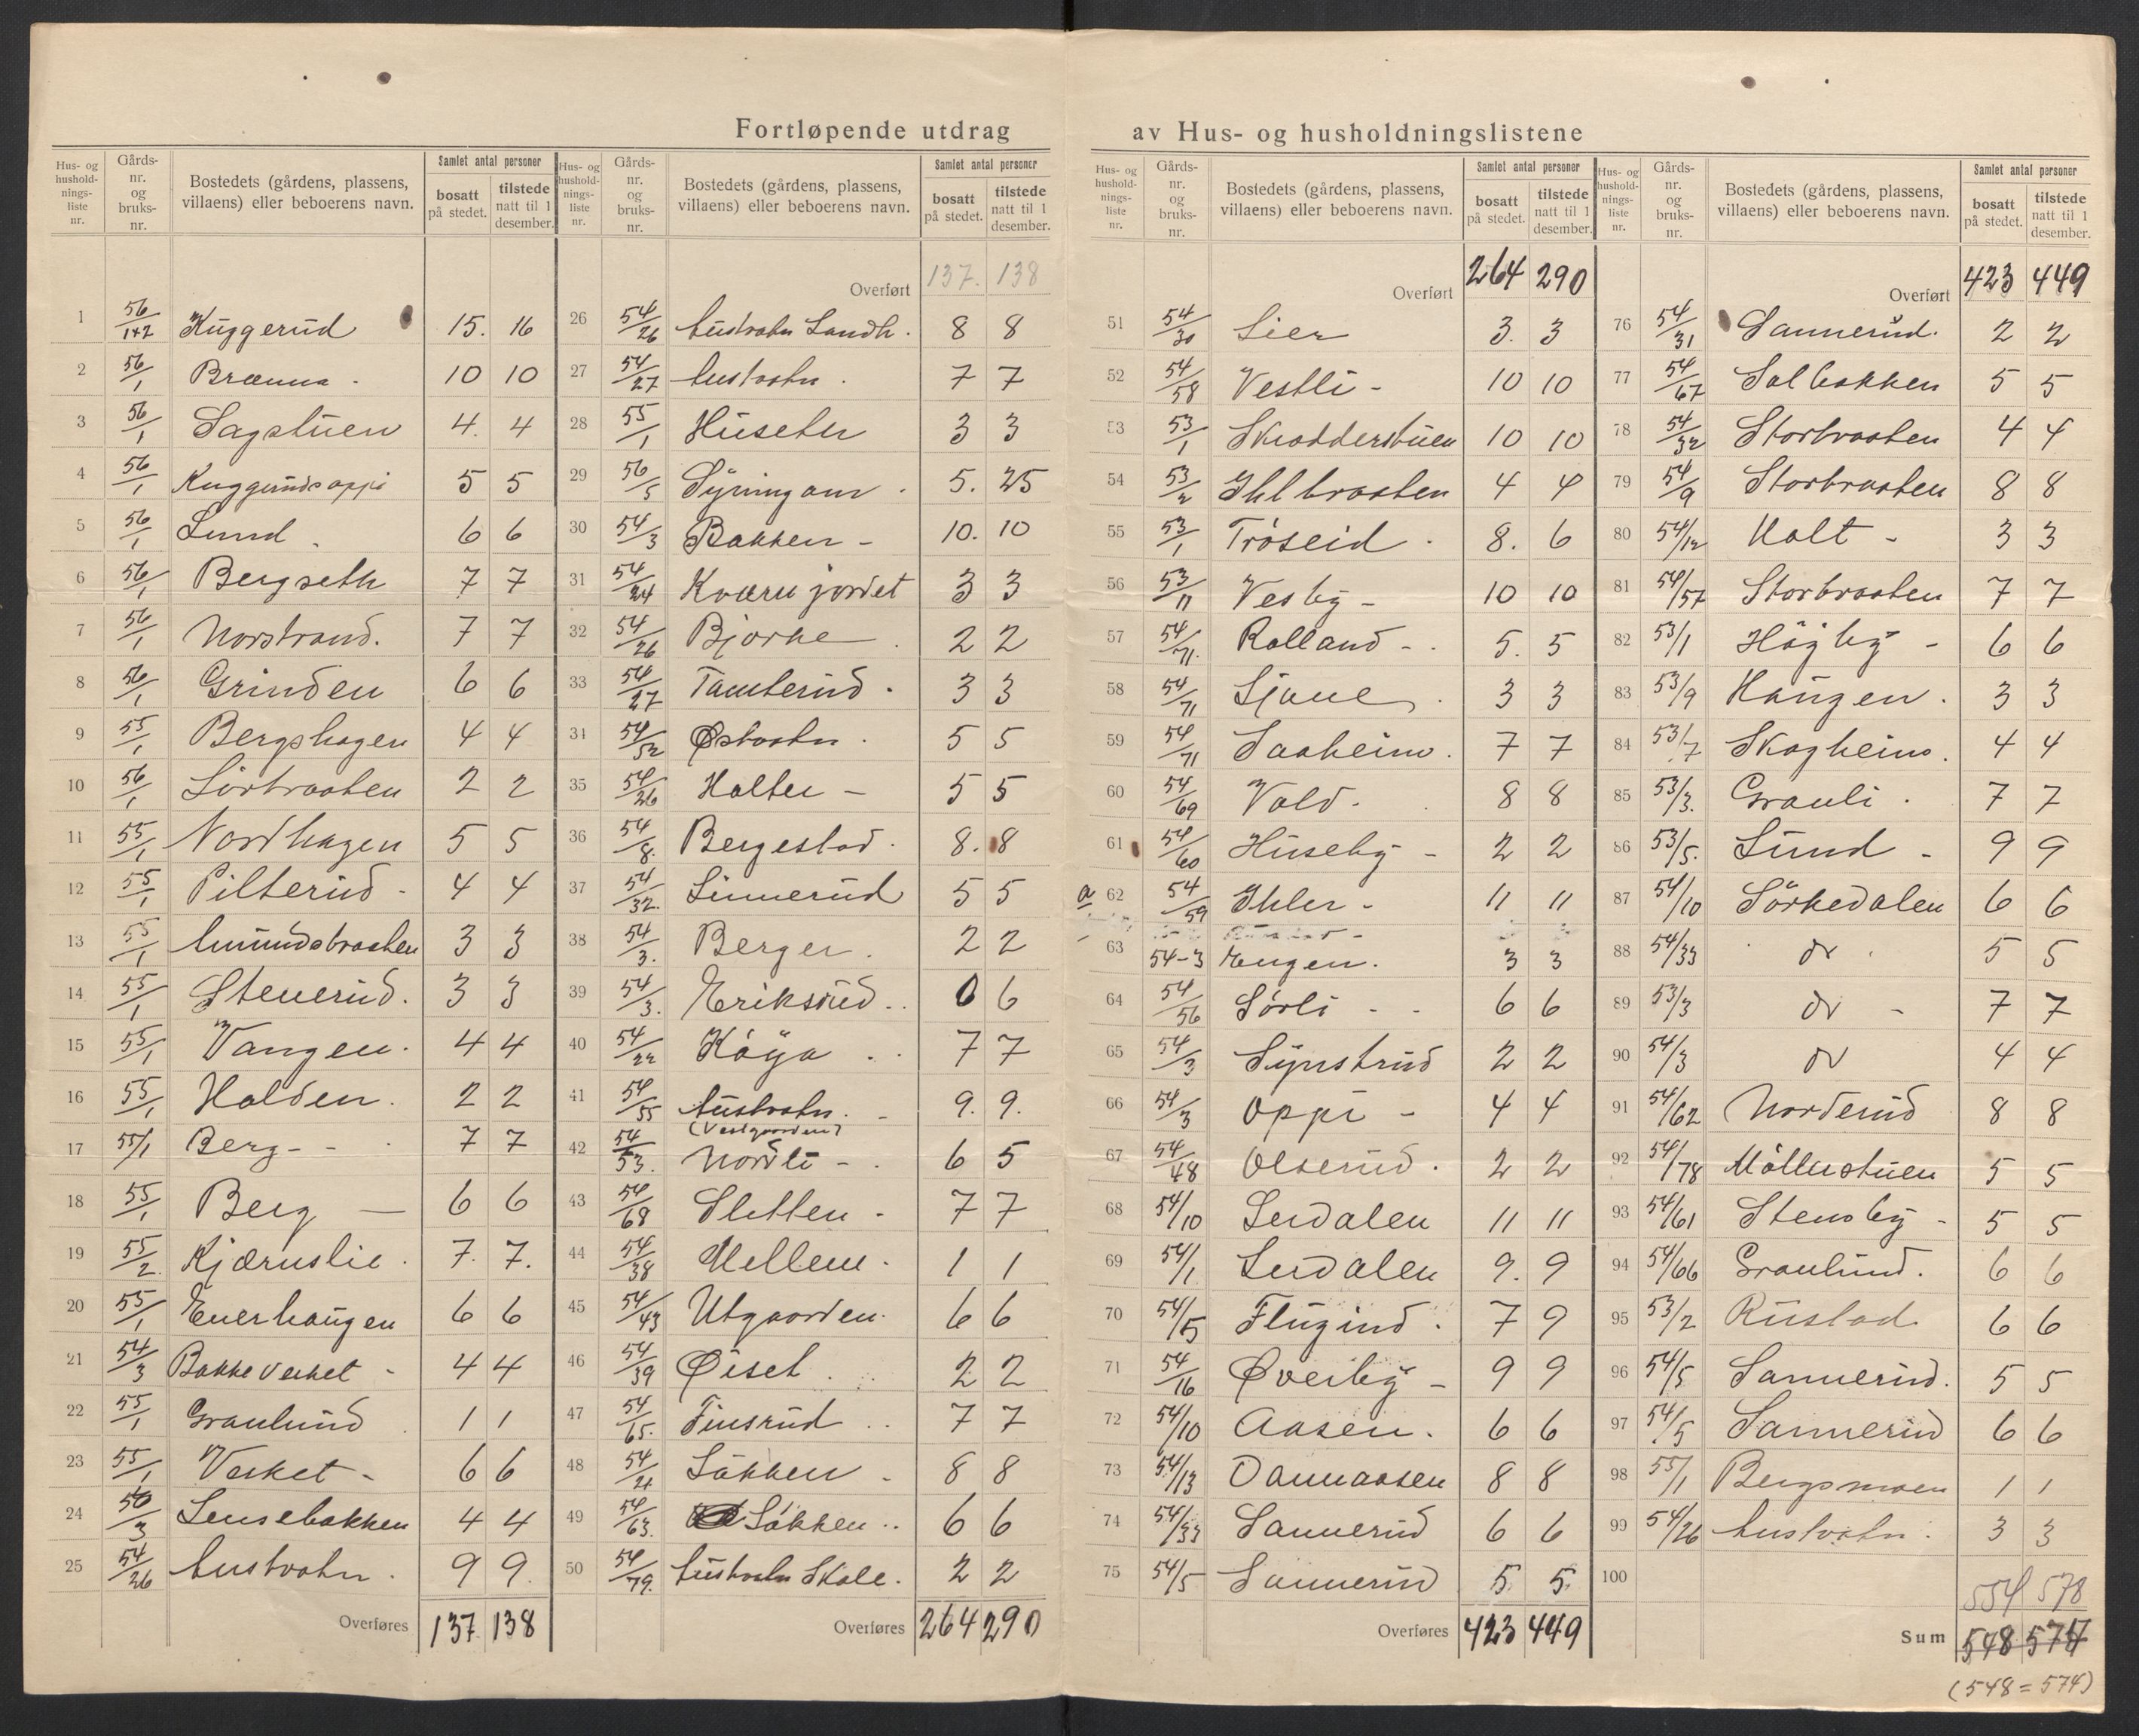 Fortløpende utdrag av Hus- og husholdningslistene
Hus- og husholdningsliste nr. Gårdsnr. og bruksnr. Bostedets (gårdens, plassens, villaens) eller beboerens navn. Samlet antal personer bosatt på stedet. tilstede natt til 1 desember.
1 56/1+2 Kuggerud 15. 16
2 56/1 Brænna 10 10
3 56/1 Sagstuen 4. 4
4 56/1 Kuggerudsoppi 5 5
5 56/1 Lund 6 6
6 56/1 Bergseth 7 7
7 56/1 Norstrand. 7 7
8 56/1 Grinden 6 6
9 55/1 Bergshagen 4 4
10 56/1 Sörbraaten 2 2
11 55/1 Nordhagen 5 5
12 55/1 Pilterud - 4 4
13 55/1 Amundsbraaten 3 3
14 55/1 Stenerud. 3 3
15 55/1 Vangen. 4 4
16 55/1 Holden. 2 2
17 55/1 Berg - - 7 7
18 55/1 Berg — 6 6
19 55/2 Kjærnslie. 7. 7.
20 55/1 Enerhaugen 6 6
21 54/3 Bakke Verket - 4 4
22 55/1 Granlund 1 1
23 55/1 Verket - 6 6
24 56/3 Lensebakken 4 4
25 54/26 Austvatn. 9 9.
Overføres 137 138
Hus- og husholdningsliste nr. Gårdsnr. og bruksnr. Bostedets (gårdens, plassens, villaens) eller beboerens navn. Samlet antal personer bosatt på stedet. tilstede natt til 1 desember.
Overført 137. 138
26 54/26 Austvatn Landh. 8 8
27 54/27 Austvatn. 7 7
28 55/1 Huseter 3 3
29 56/5 Syningom. 5. 25
30 54/3 Bakken - 10. 10
31 54/24 Kværnjordet 3 3
32 54/26 Bjørke 2 2
33 54/27 Tamterud. 3 3
34 54/52 Østvatn. 5 5
35 54/26 Holter - 5 5
36 54/8. Bergestad. 8. 8
37 54/32. Linnerud 5 5
38 54/3. Berger. 2 2
39 54/3. Eriksrud.. 6 6
40 54/22 Köya.. 7 7
41 54/55 Austvatn. - 9. 9.
(Vestgaarden)
42 54/53. Nordli - . 6 5
43 54/68 Sletten - 7 7
44 54/38 Mellem. 1 1
45 54/43 Utgaarden. 6 6
46 54/39 Øiset.. 2 2
47 54/65. Finsrud.. 7 7
48 54/21 Løkken - 8 8
49 54/63. Løkken.. 6 6
50 54/79. Austvatn Skole. 2 2
Overføres 264 290
Hus- og husholdningsliste nr. Gårdsnr. og bruksnr. Bostedets (gårdens, plassens, villaens) eller beboerens navn. Samlet antal personer bosatt på stedet. tilstede natt til 1 desember.
Overført 264 290
51 54/30 Lier 3. 3
52 54/58 Vestli - 10 10
53 53/1 Skradderstuen 10 10
54 53/2 Ihlbraaten 4 4
55 53/1 Tröseid. 8. 6
56 53/11 Vesby - 10 10
57 54/71. Rolland - . 5. 5
58 54/71 Ljane. 3 3
59 54/71 Saaheim. 7 7
60 54/69 Vold. 8 8
61 54/60 Huseby - 2 2
a 62 54/59 Ihler - 11 11
63 54-3 Engen. 3 3
64 54/56 Sörli - - 6 6
65 54/3 Synstrud 2 2
66 54/3 Oppi - 4 4
67 54/48 Olserud. 2 2
68 54/10 Lerdalen 11 11
69 54/1 Lerdalen 9. 9
70 54/5 Flugind. 7 9
71 54/16 Øverby - 9 9
72 54/10 Aasen. 6 6
73 54/13 Dannaasen 8 8
74 54/33 Sannerud 6 6
75 54/5 Sannerud 5 5.
Overføres 423 449
Hus- og husholdningsliste nr. Gårdsnr. og bruksnr. Bostedets (gårdens, plassens, villaens) eller beboerens navn. Samlet antal personer bosatt på stedet. tilstede natt til 1 desember.
Overført 423 449
76 54/31 Sannerud. 2 2
77 54/67 Solbakken 5 5
78 54/32 Storbraaten 4 4
79 54/9 Storbraaten 8 8
80 54/12 Holt - 3 3
81 54/57 Storbraaten 7 7
82 53/1 Högby - 6 6
83 53/9 Haugen. 3 3
84 53/7 Skogheim. 4 4
85 53/3. Granli. 7 7
86 53/5. Lund - 9 9
87 54/10 Sörkedalen 6 6
88 54/33 do 5 5
89 53/3 do - 7 7
90 54/3 do 4 4
91 54/62 Norderud 8 8
92 54/78 Möllerstuen 5 5
93 54/61 Stensby - 5 5
94 54/66 Granlund. 6 6
95 53/2 Rustad. 6 6
96 54/5 Sannerud. 5 5
97 54/5 Sannerud 6 6
98 55/1 Bergsmoen 1 1
99 54/26 Austvatn. 3 3
100
554 578
Sum 548 574
(548 = 574)